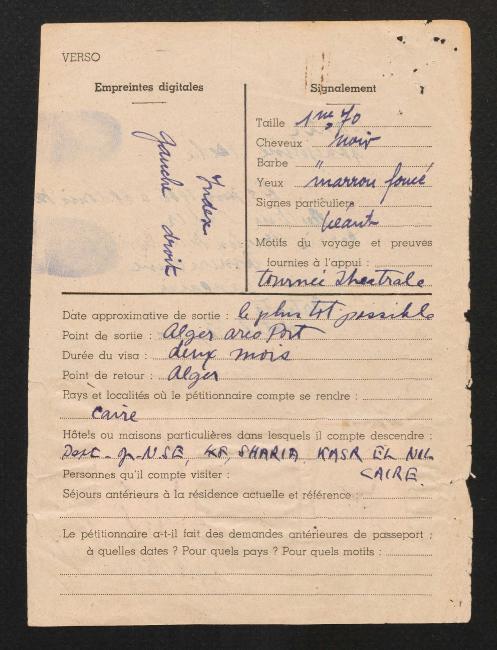 VERSO
Empreintes digitales
Index
gauche droit
Signalement
Taille 1m 70
Cheveux noir
Barbe "
Yeux marron foncé
Signes particuliers
néant
Motifs du voyage et preuves
fournies à l'appui :
tournée Theatrale
Date approximative de sortie : le plus tot possible
Point de sortie : Alger Port
Durée du visa : deux mois
Point de retour : Alger
Pays et localités où le pétitionnaire compte se rendre :
Caire
Hôtels ou maisons particulières dans lesquels il compte descendre :
SHARIA KASR EL NIL
Personnes qu'il compte visiter : CAIRE.
Séjours antérieurs à la résidence actuelle et référence :
Le pétitionnaire a-t-il fait des demandes antérieures de passeport ;
à quelles dates ? Pour quels pays ? Pour quels motifs :